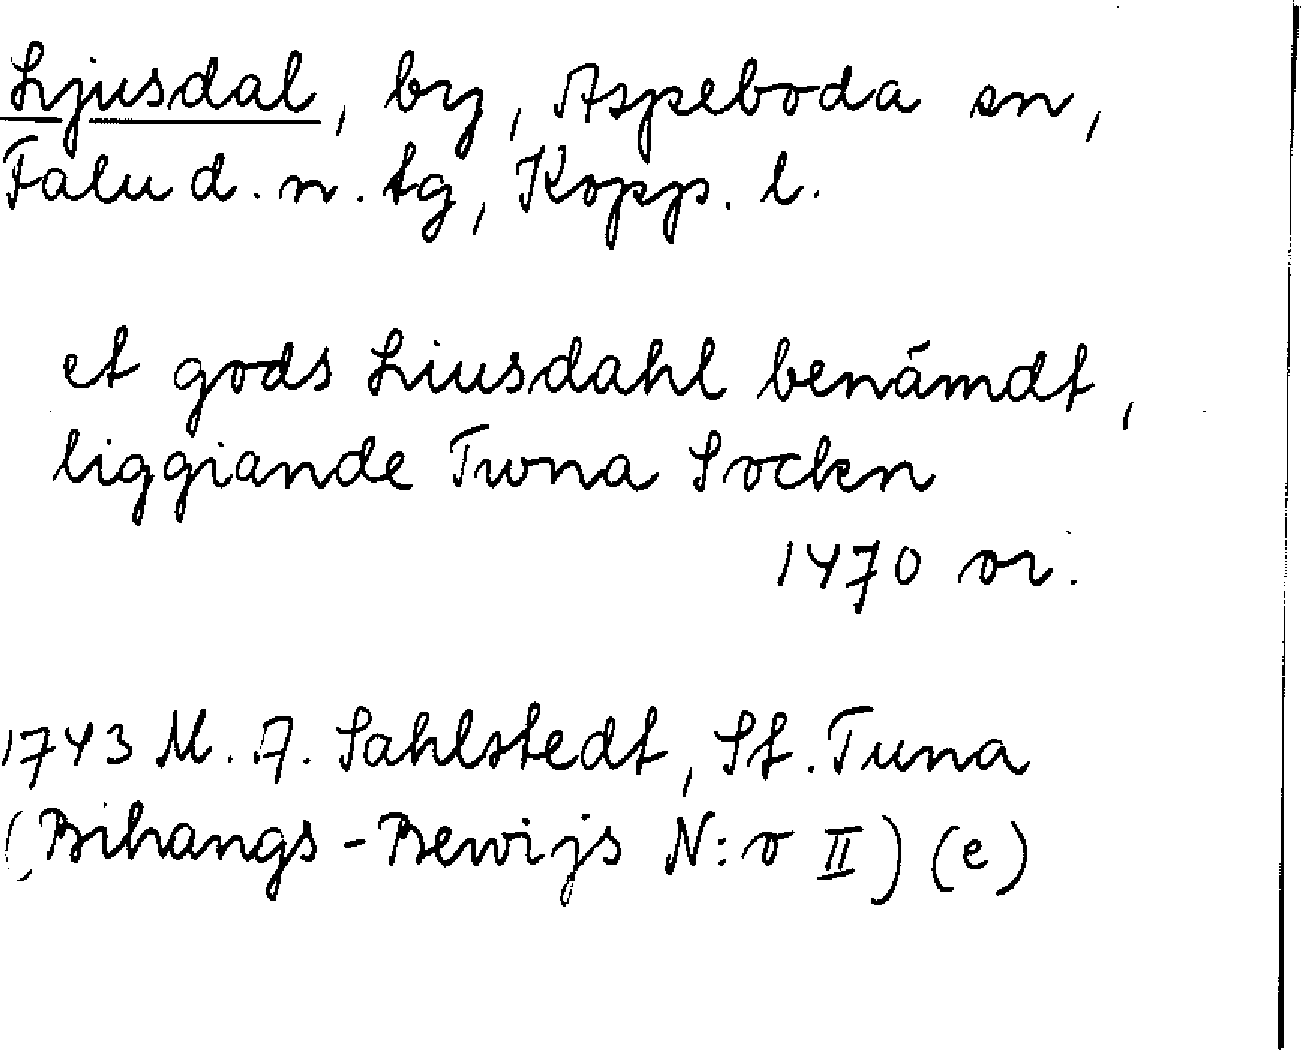 Ljusdal, by, Aspeboda sn,
Falu d. n. tg, Kopp. l.
et gods Liusdahl benämdt,
liggiande Twna Sockn
1470 or.
1743 M. A. Sahlstedt, St. Tuna
(Bihangs-Bewijs N:o II) (e)